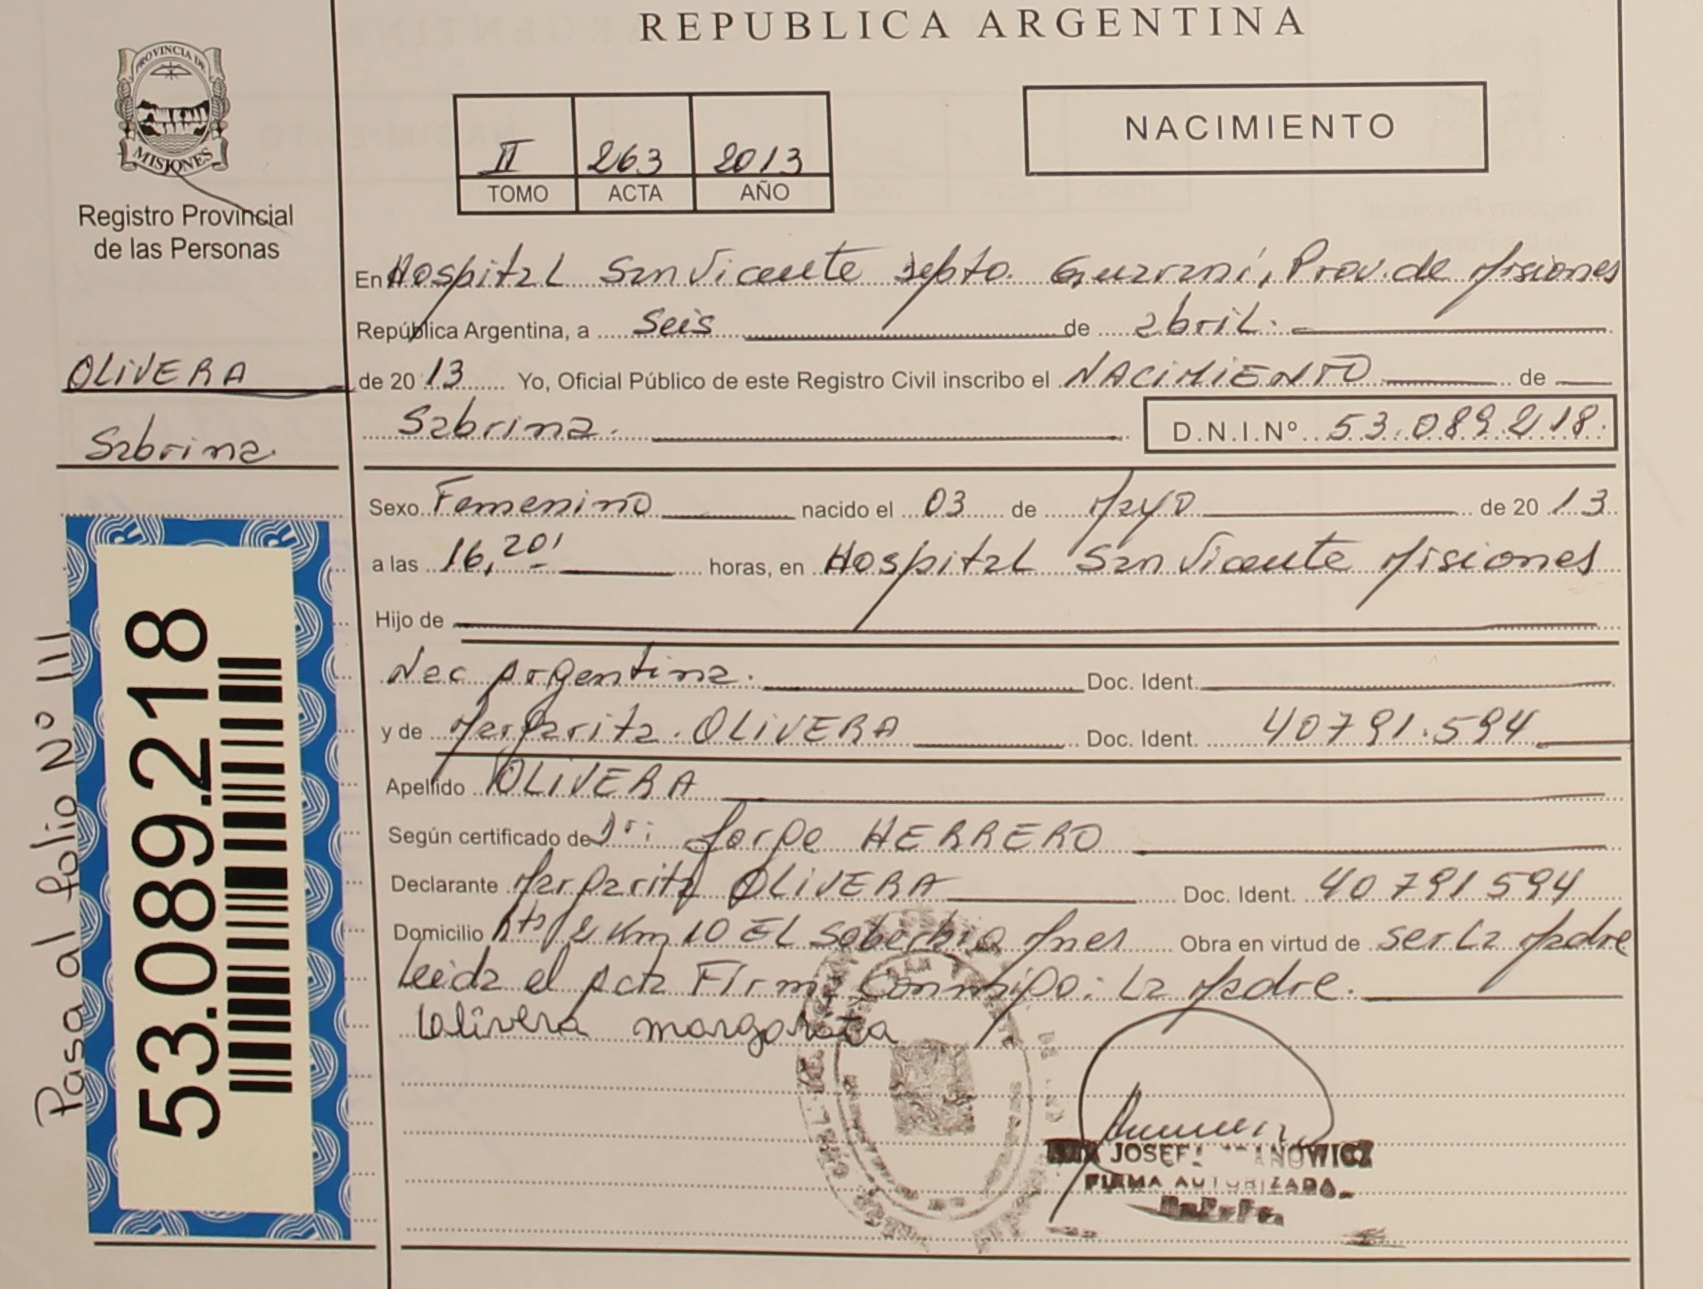 REPUBLICA ARGENTINA
PROVINCIA DE
MISIONES
Registro Provincial
de las Personas
II 263 2013
TOMO ACTA AÑO
NACIMIENTO
En Hospital San Vicente Depto. Guaraní, Prov. de Misiones
República Argentina, a Seis de abril.
de 2013 Yo, Oficial Público de este Registro Civil inscribo el NACIMIENTO de
OLIVERA
Sabrina
Sabrina.
D.N.I.Nº 53.089.218.
Sexo Femenino nacido el 03 de Mayo de 2013
a las 16,20' horas, en Hospital San Vicente Misiones
Hijo de
Nac Argentina. Doc. Ident.
y de Margarita OLIVERA Doc. Ident. 40791.594
Apellido OLIVERA
Según certificado de Dr: Jorge HERRERO
Declarante Margarita OLIVERA Doc. Ident. 40.791594
Domicilio Km 10 EL Soberbio Mnes Obra en virtud de ser La Madre
Leida el Acta Firma Conmigo: La Madre.
Olivera margarita
FIRMA AUTORIZADA
53.089.218
Pasa al folio Nº 111